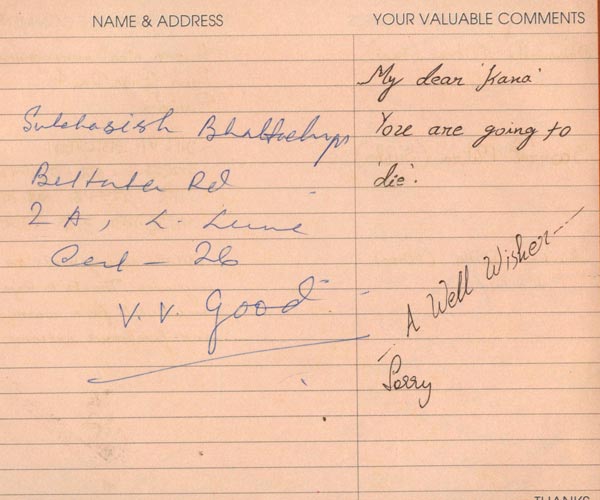 NAME & ADDRESS
YOUR VALUABLE COMMENTS
Subhasish
Rd
2 A, L.
Cal - 26
V. V. Good
My dear 'Kana'
You are going to
'die'.
-- A Well Wisher --
Sorry
THANKS